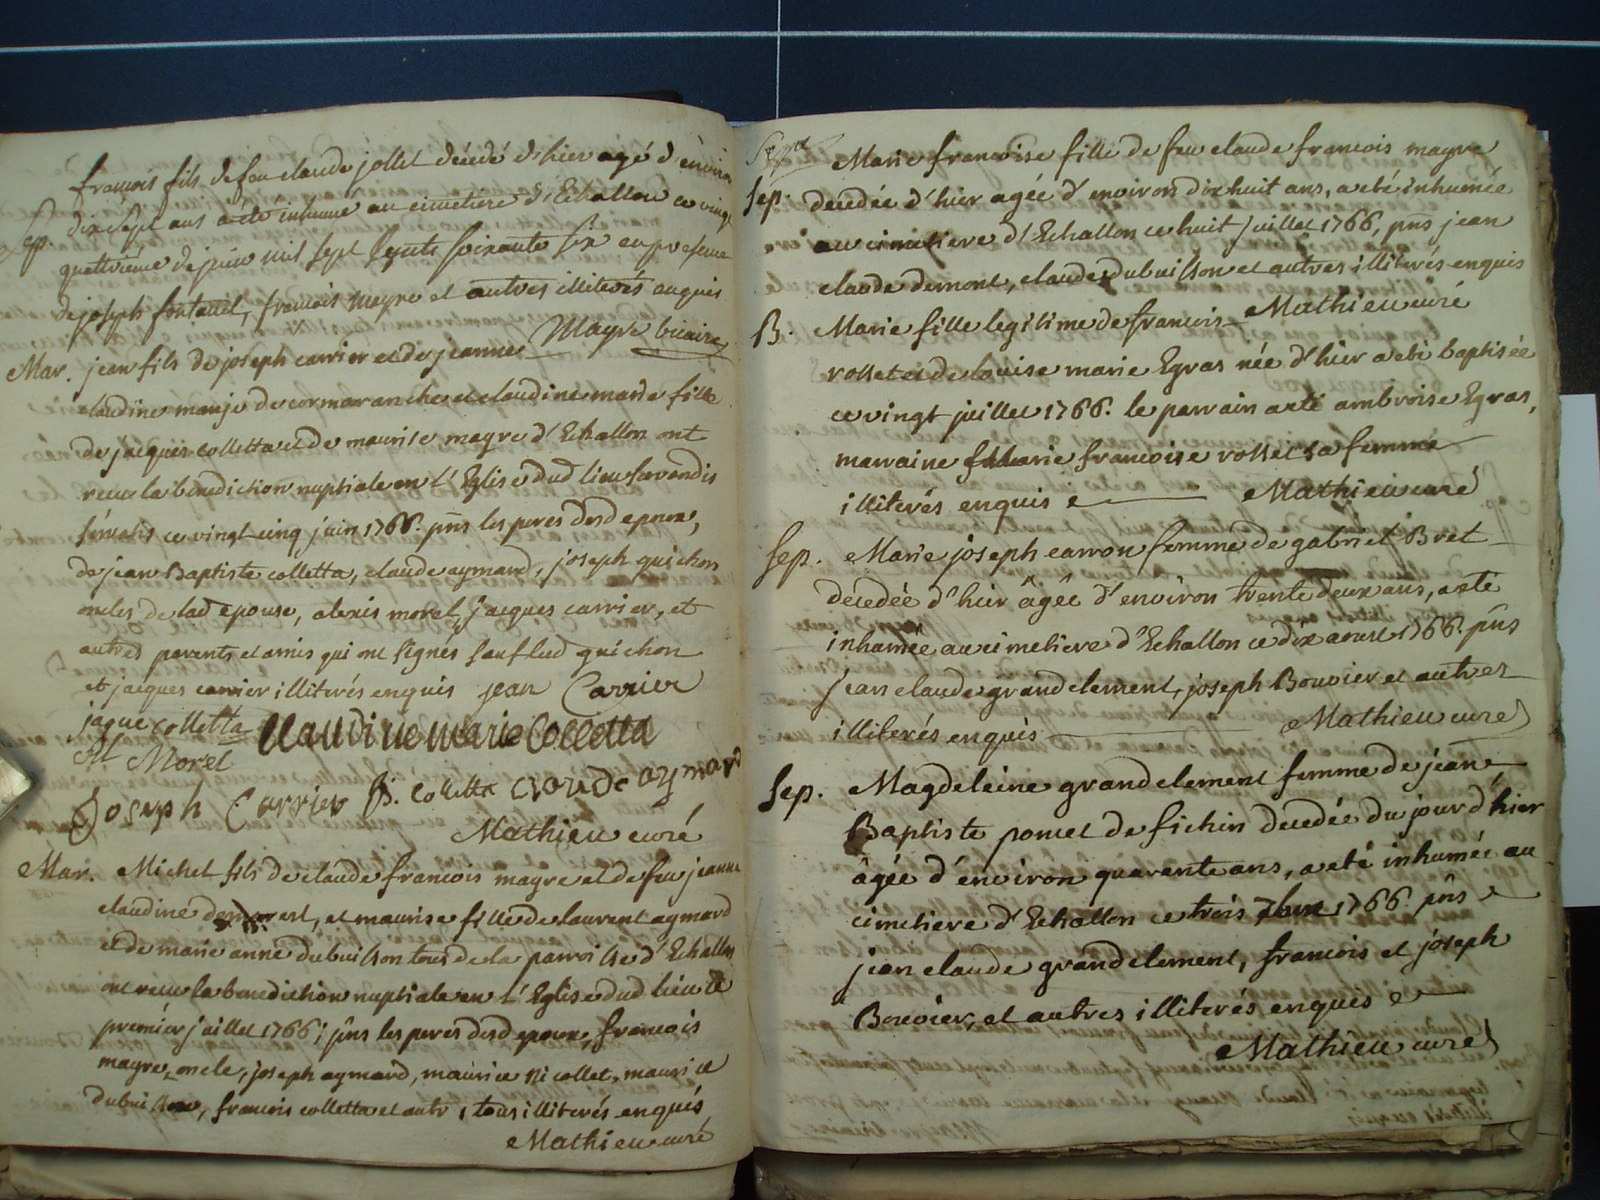 françois fils de feu claude jollet décédé d'hier agé d'environ
Sep. dix sept ans a été inhumé au cimetiere d'Echallon ce vingt
quattrieme de juin mil sept cents soixante six en presence
de joseph fontanel, francois mayre et autres illiterés enquis
Mayre vicaire
Mar. jean fils de joseph carrier et de jeanne
claudine manje de cormaranche et claudine marie fille
de jacques colletta et de maurise mayre d'Echallon ont
recu la benediction nuptiale en l'Eglise dud lieu servandis
servatis ce vingt cinq juin 1766. pñs les peres desd epoux,
de jean Baptiste colletta, claude aymard, joseph guichon
oncles de lad epouse, alexis morel, jacques carrier, et
autres parents et amis qui ont signés sauf lud guichon
et jacques carrier illiterés enquis jean Carrier
jaque colletta Claudine marie Colletta
Al Morel
Joseph Carrier B. colletta claude aymard
Mathieu curé
Mar. Michel fils de claude francois mayre et de feu jeanne
claudine, et maurise fille de laurent aymard
et de marie anne dubuisson tous de la parroisse d'Echallon
ont recu la benediction nuptiale en l'Eglise dud lieu ce
premier juillet 1766; pñs les peres desd epoux, francois
mayre oncle, joseph aymard, maurice nicollet, maurice
dubuisson, francois colletta et autr, tous illiterés enqués
Mathieu curé
Marie francoise fille de feu claude francois mayre
Sep. decedée d'hier agée d'environ dixhuit ans, a eté inhumée
au cimetiere d'Echallon ce huit juillet 1766, pñs jean
claude demont, claude dubuisson et autres illiterés enquis
Mathieu curé
B. Marie fille legitime de francois
rosset et de louise marie Egras née d'hier a eté baptisée
ce vingt juillet 1766. le parrain a eté ambroise Egras,
marraine Marie francoise rosset sa femme
illiterés enquis Mathieu curé
Sep. Marie joseph carron femme de gabriel Bret
décedée d'hier âgée d'environ trente deux ans, a eté
inhumée au cimetiere d'Echallon ce dix aoust 1766. pñs
jean claude grandclement, joseph Bouvier et autres
illiterés enquis Mathieu curé
Sep. Magdeleine grandclement femme de jean
Baptiste poncet de fichin decedée du jour d'hier
âgée d'environ quarente ans, a eté inhumée au
cimetiere d'Echallon ce trois 7bre 1766. pñs
jean claude grandclement, francois et joseph
Bouvier, et autres illiterés enquis
Mathieu curé